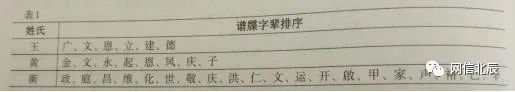 表1
姓氏 谱牒字辈排序
王 广、文、恩、立、建、德
黄 金、文、永、起、恩、凤、庆、子
蔺 政、庭、昌、维、化、世、敬、庆、洪、仁、文、运、开、啟、甲、家、声
网信北辰